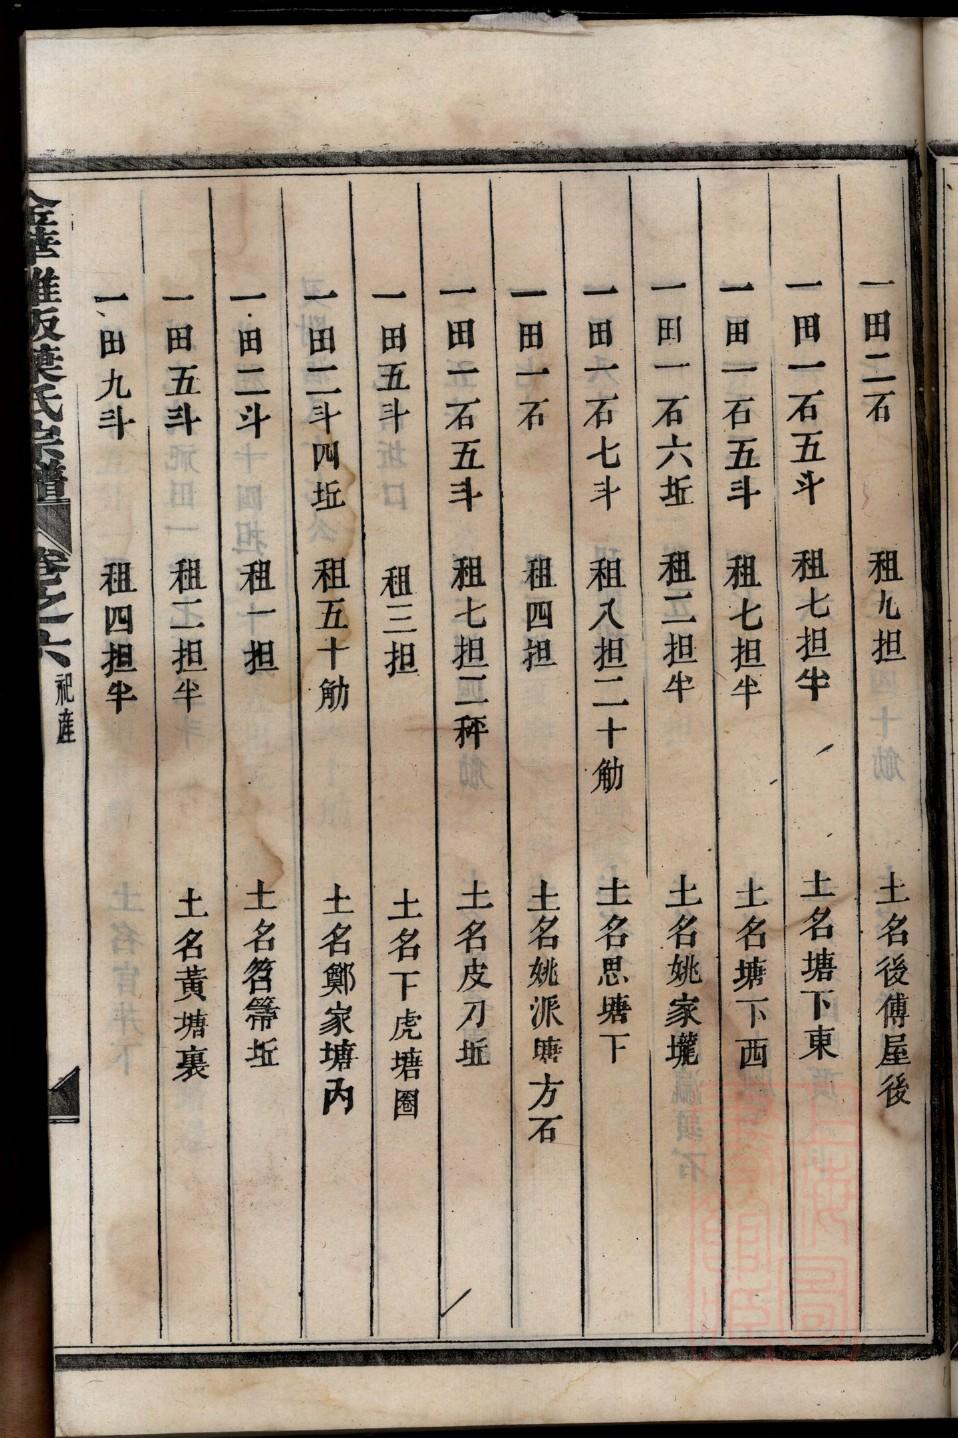 一田二石 租九担 土名後傅屋後
一田一石五斗 租七担半 土名塘下東
一田一石五斗 租七担半 土名塘下西
一田一石六坵 租二担半 土名姚家壠
一田一石七斗 租八担二十觔 土名思塘下
一田一石 租四担 土名姚派塘方石
一田一石五斗 租七担二秤 土名皮刀坵
一田五斗 租三担 土名下虎塘圈
一田二斗四坵 租五十觔 土名鄭家塘內
一田二斗 租一担 土名笤箒坵
一田五斗 租二担半 土名黃塘裏
一田九斗 租四担半
金華雅畈葉氏宗譜 卷之六 祀產